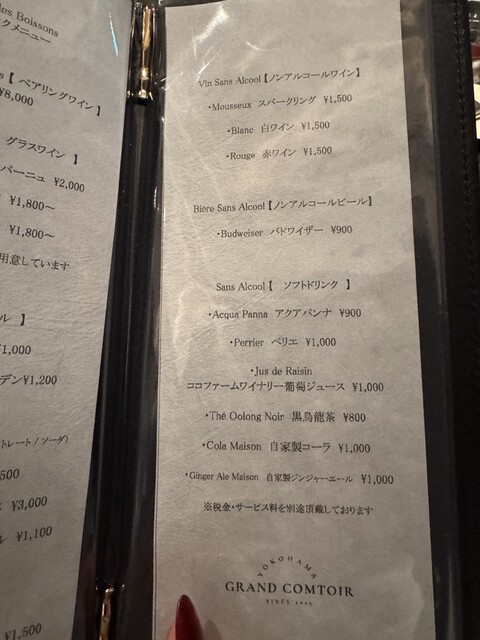 des Boissons
クメニュー
【 ペアリングワイン】
¥8,000
グラスワイン 】
パーニュ ¥2,000
¥1,800～
¥1,800～
用意しています
ル 】
¥1,000
デン¥1,200
トレート / ソーダ)
500
¥3,000
ル ¥1,100
¥1,500
Vin Sans Alcool【ノンアルコールワイン】
・Mousseux スパークリング ¥1,500
・Blanc 白ワイン ¥1,500
・Rouge 赤ワイン ¥1,500
Bière Sans Alcool【ノンアルコールビール】
・Budweiser バドワイザー ¥900
Sans Alcool【 ソフトドリンク 】
・Acqua Panna アクアパンナ ¥900
・Perrier ペリエ ¥1,000
・Jus de Raisin
ココファームワイナリー葡萄ジュース ¥1,000
・Thé Oolong Noir 黒烏龍茶 ¥800
・Cola Maison 自家製コーラ ¥1,000
・Ginger Ale Maison 自家製ジンジャーエール ¥1,000
※税金・サービス料を別途頂戴しております
YOKOHAMA
GRAND COMTOIR
SINCE